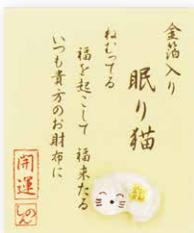 金箔入り
眠り猫
ねむってる
福を起こして 福来たる
いつも貴方のお財布に
開運